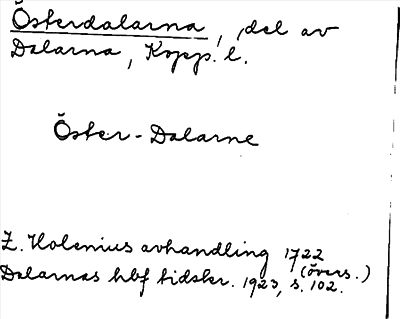 Österdalarna, del av
Dalarna, Kopp. l.
Öster-Dalarne
Z. Holenius avhandling 1722
(övers.)
Dalarnas hbf tidskr. 1923, s. 102.